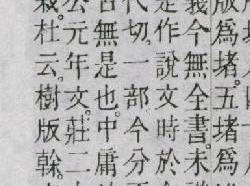 版爲堵。五堵爲
義今無全書。未
是作說文時於
代切。一部今分
古無是也。中庸
公元年文。莊二
栽。杜云。樹版榦。